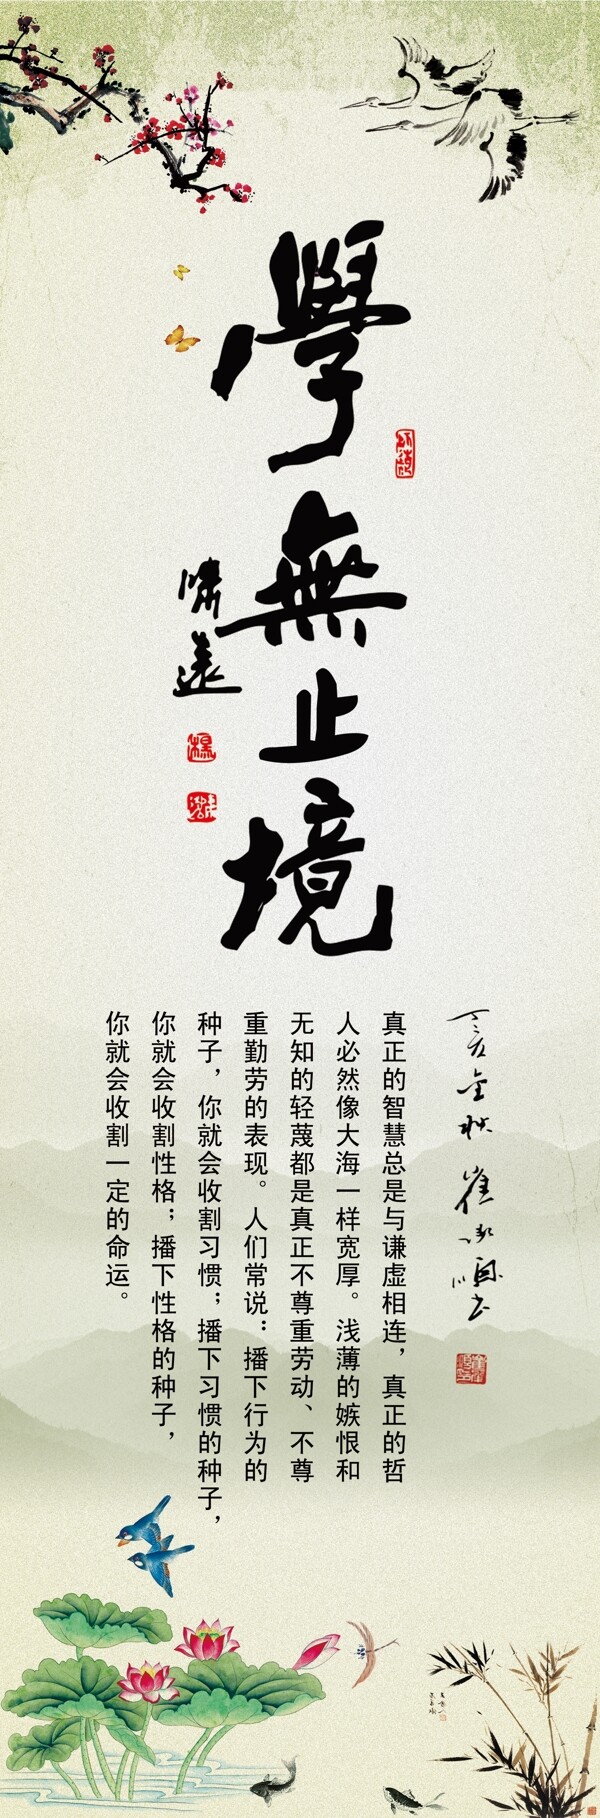 學無止境
啸遠
真正的智慧总是与谦虚相连，真正的哲
人必然像大海一样宽厚。浅薄的嫉恨和
无知的轻蔑都是真正不尊重劳动、不尊
重勤劳的表现。人们常说：播下行为的
种子，你就会收割习惯；播下习惯的种子，
你就会收割性格；播下性格的种子，
你就会收割一定的命运。